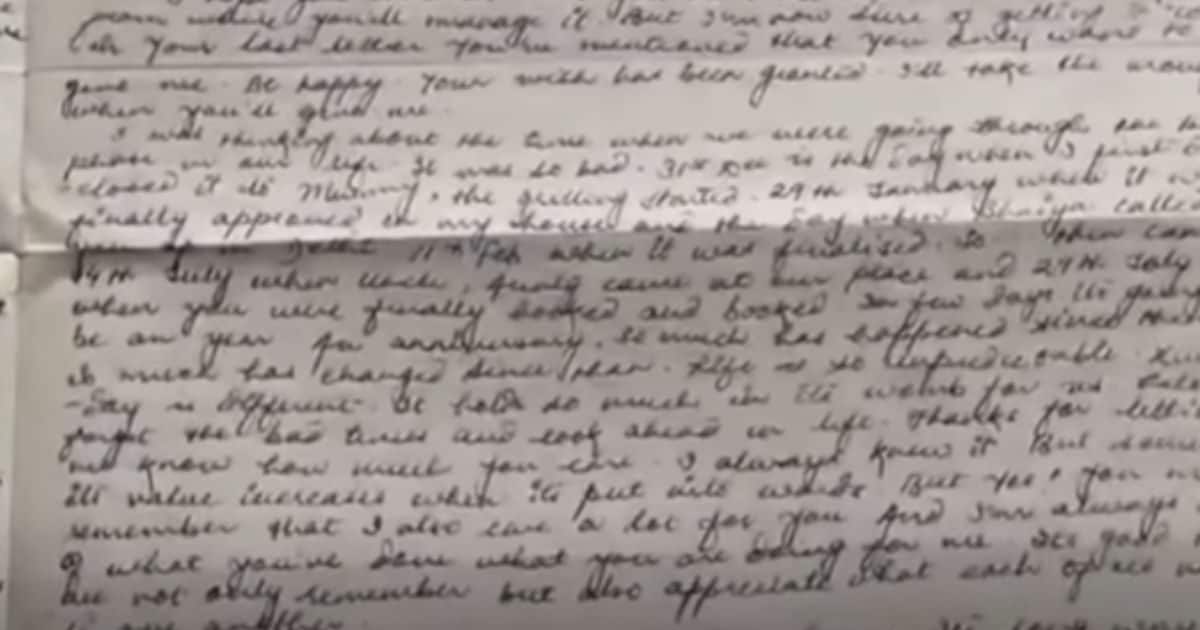 you'll manage it. But I'm now sure of getting
In your last letter you've mentioned that you only want to
give me. Be happy. Your wish has been granted. I'll take the
when you'll give me.
I was thinking about the time when we were going through the
phase in our life. It was so bad. 31st Dec is the day when I first
closed it to Mummy, the grilling started. 29th January when it
finally appeared in my house and the day when Bhaiya called
11th Feb when it was finalised. So then came
14th July when Uncle, Aunty came at our place and 29th July
when you were finally booked and booked. In few days it's going
be an year for anniversary. So much has happened since
so much has changed since then. Life is so unpredictable.
-day is different. It holds so much in its womb for us.
forget the bad times and look ahead in life. Thanks for
me know how much you care. I always knew it But
its value increases when its put into words. But Yes! You
remember that I also care a lot for you And I'm always
of what you've done what you are doing for me. Its good
we not only remember but also appreciate what each of us
to one another.